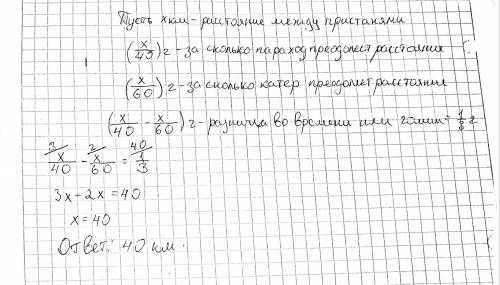 Пусть x км - расстояние между пристанями
(x/40) ч - за сколько пароход преодолеет расстояние
(x/60) ч - за сколько катер преодолет расстояние
(x/40 - x/60) ч - разница во времени или 20 мин = 1/3 ч
3/ 2/ 40/
x/40 - x/60 = 1/3
3x - 2x = 40
x = 40
Ответ: 40 км.